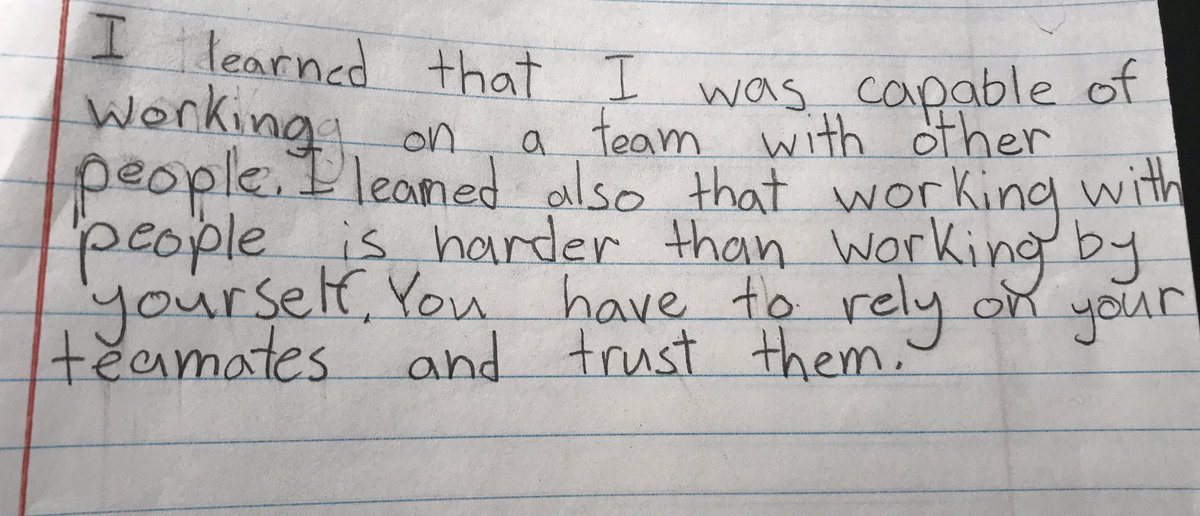 I learned that I was capable of
working on a team with other
people. I learned also that working with
people is harder than working by
yourself. You have to rely on your
teamates and trust them.